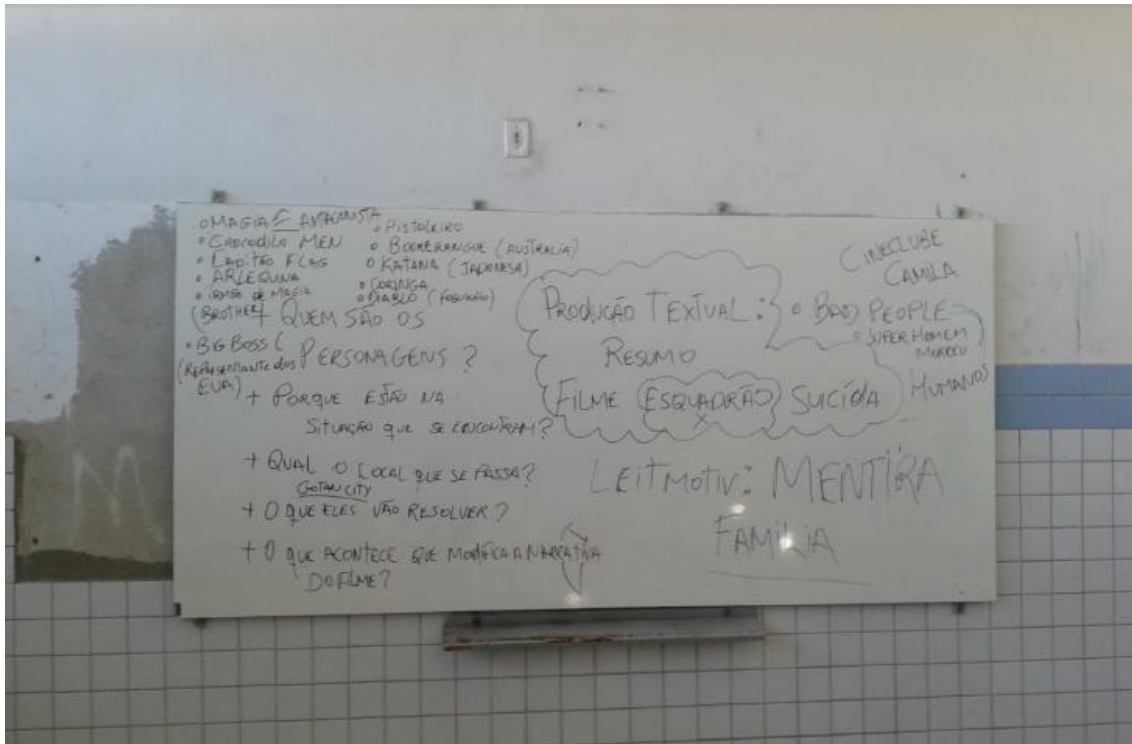 o MAGIA ANTAGONISTA
o CROCODILO MEN
o CAPITÃO FLAG
o ARLEQUINA
o IRMÃO DE MAGIA
(BROTHER)
o PISTOLEIRO
o BOOMERANGUE (AUSTRALIA)
o KATANA (JAPONESA)
o CORINGA
o DIABLO
+ QUEM SÃO OS
PERSONAGENS?
o BIG BOSS
(REPRESENTANTE DOS
EUA)
+ PORQUE ESTÃO NA
SITUAÇÃO QUE SE ENCONTRAM?
+ QUAL O LOCAL QUE SE PASSA?
GOTAN CITY
+ O QUE ELES VÃO RESOLVER?
+ O QUE ACONTECE QUE MODIFICA A NARRATIVA
DO FILME?
PRODUÇÃO TEXTUAL:
RESUMO
FILME ESQUADRÃO SUICÍDA
CINECLUBE
CAMILA
o BAD PEOPLE
o SUPER HOMEM
MORREU
HUMANOS
LEITMOTIV: MENTIRA
FAMÍLIA